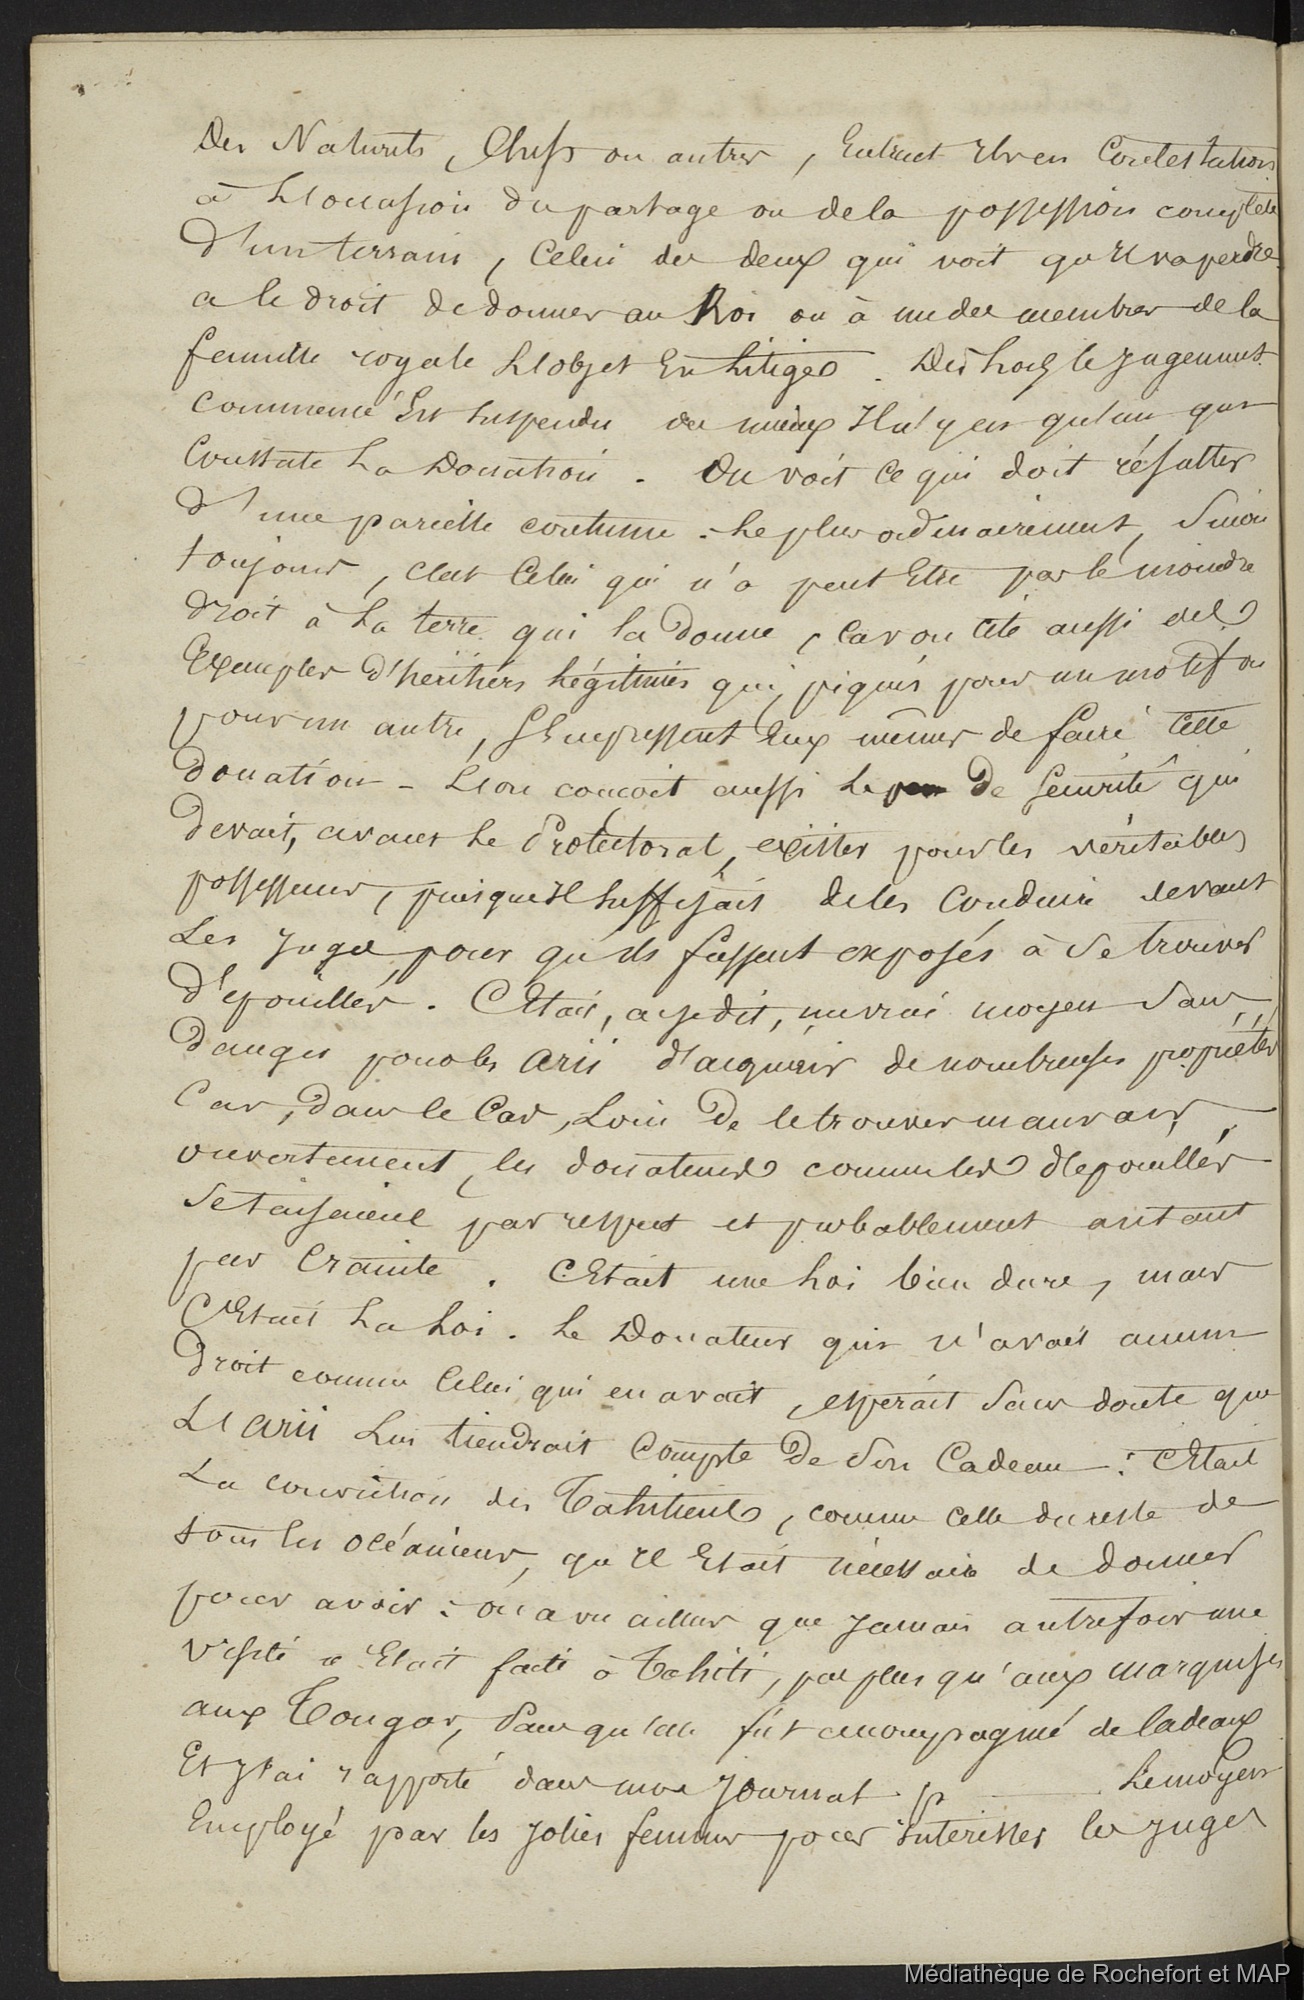 Des Naturels, Chefs ou autres, Entrent Ils en Contestation
à L'occasion du partage ou de la possession complète
d'un terrain, Celui des deux qui voit qu'Il va perdre
a le droit de donner au Roi ou à un des membres de la
famille royale L'objet En Litige. Dès Lors le Jugement
commencé Est Suspendu Il n'y en qu'un qui
Constate La Donation. On voit ce qui doit résulter
d'une pareille coutume : Le plus ordinairement, Sinon
toujours, c'est Celui qui n'a peut Etre pas le moindre
droit à La terre qui la donne, Car on cite aussi des
Exemples d'héritiers Légitimes qui, piqués pour un motif ou
pour un autre, S'Empressent Eux mêmes de faire Cette
donation - L'on conçoit aussi Le peu De Sécurité qui
devait, avant Le Protectorat, exister pour les véritables
possesseurs, puisqu'Il Suffisait de les Conduire devant
Les Juges pour qu'ils fussent exposés à Se trouver
d'épouillés. C'Etait, a-je dit, un vrai moyen Sans
danger pour les Arii d'acquérir de nombreuses propriétés
Car, dans le Cas, Loin De le trouver mauvais
ouvertement, les donateurs comme les d'épouillés
Se taisaient par respect et probablement autant
par Crainte. C'Etait une Loi bien dure, mais
C'Etait La Loi. Le Donateur qui n'avait aucun
Droit comme Celui qui en avait, espérait Sans doute que
L'Arii Lui tiendrait Compte De Son Cadeau : C'Etait
La conviction des Tahitiens, comme celle du reste de
tous les océaniens, qu'Il Etait nécessaire de donner
pour avoir : on a vu ailleurs que Jamais autrefois une
visite n'Etait faite à Tahiti, pas plus qu'aux Marquises
aux Tongas, Sans qu'elle fût accompagné de Cadeaux
Et J'ai rapporté dans mon Journal p Le moyen
Employé par les Jolies femmes pour intéresser les Juges
Médiathèque de Rochefort et MAP